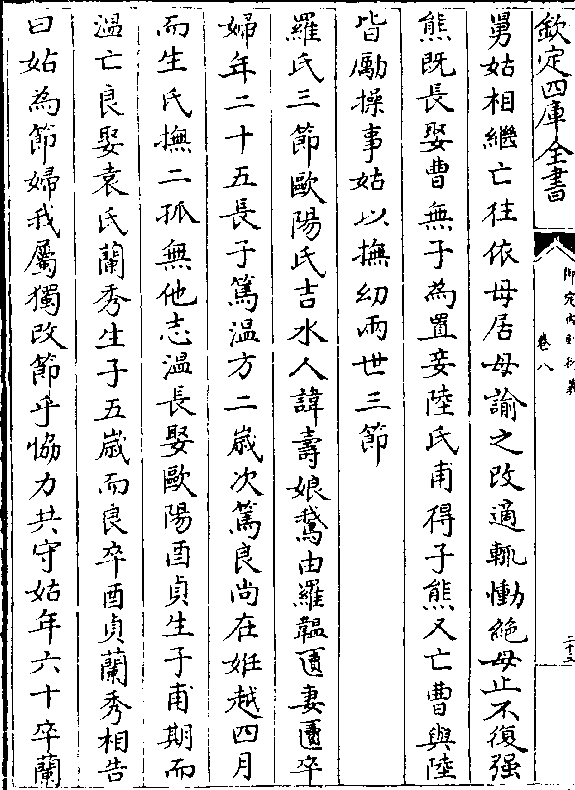 欽定四庫全書
御定內則衍義
卷八
二十三
舅姑相繼亡往依母居母諭之改適輒慟絶母止不復强
熊既長娶曹無子為置妾陸氏甫得子熊又亡曹與陸
皆勵操事姑以撫幼兩世三節
羅氏三節歐陽氏吉水人諱壽娘鵞由羅韞匵妻匵卒
婦年二十五長子篤温方二嵗次篤良尚在姙越四月
而生氏撫二孤無他志温長娶歐陽酉貞生子甫期而
温亡良娶袁氏蘭秀生子五嵗而良卒酉貞蘭秀相告
曰姑為節婦我屬獨改節乎恊力共守姑年六十卒蘭